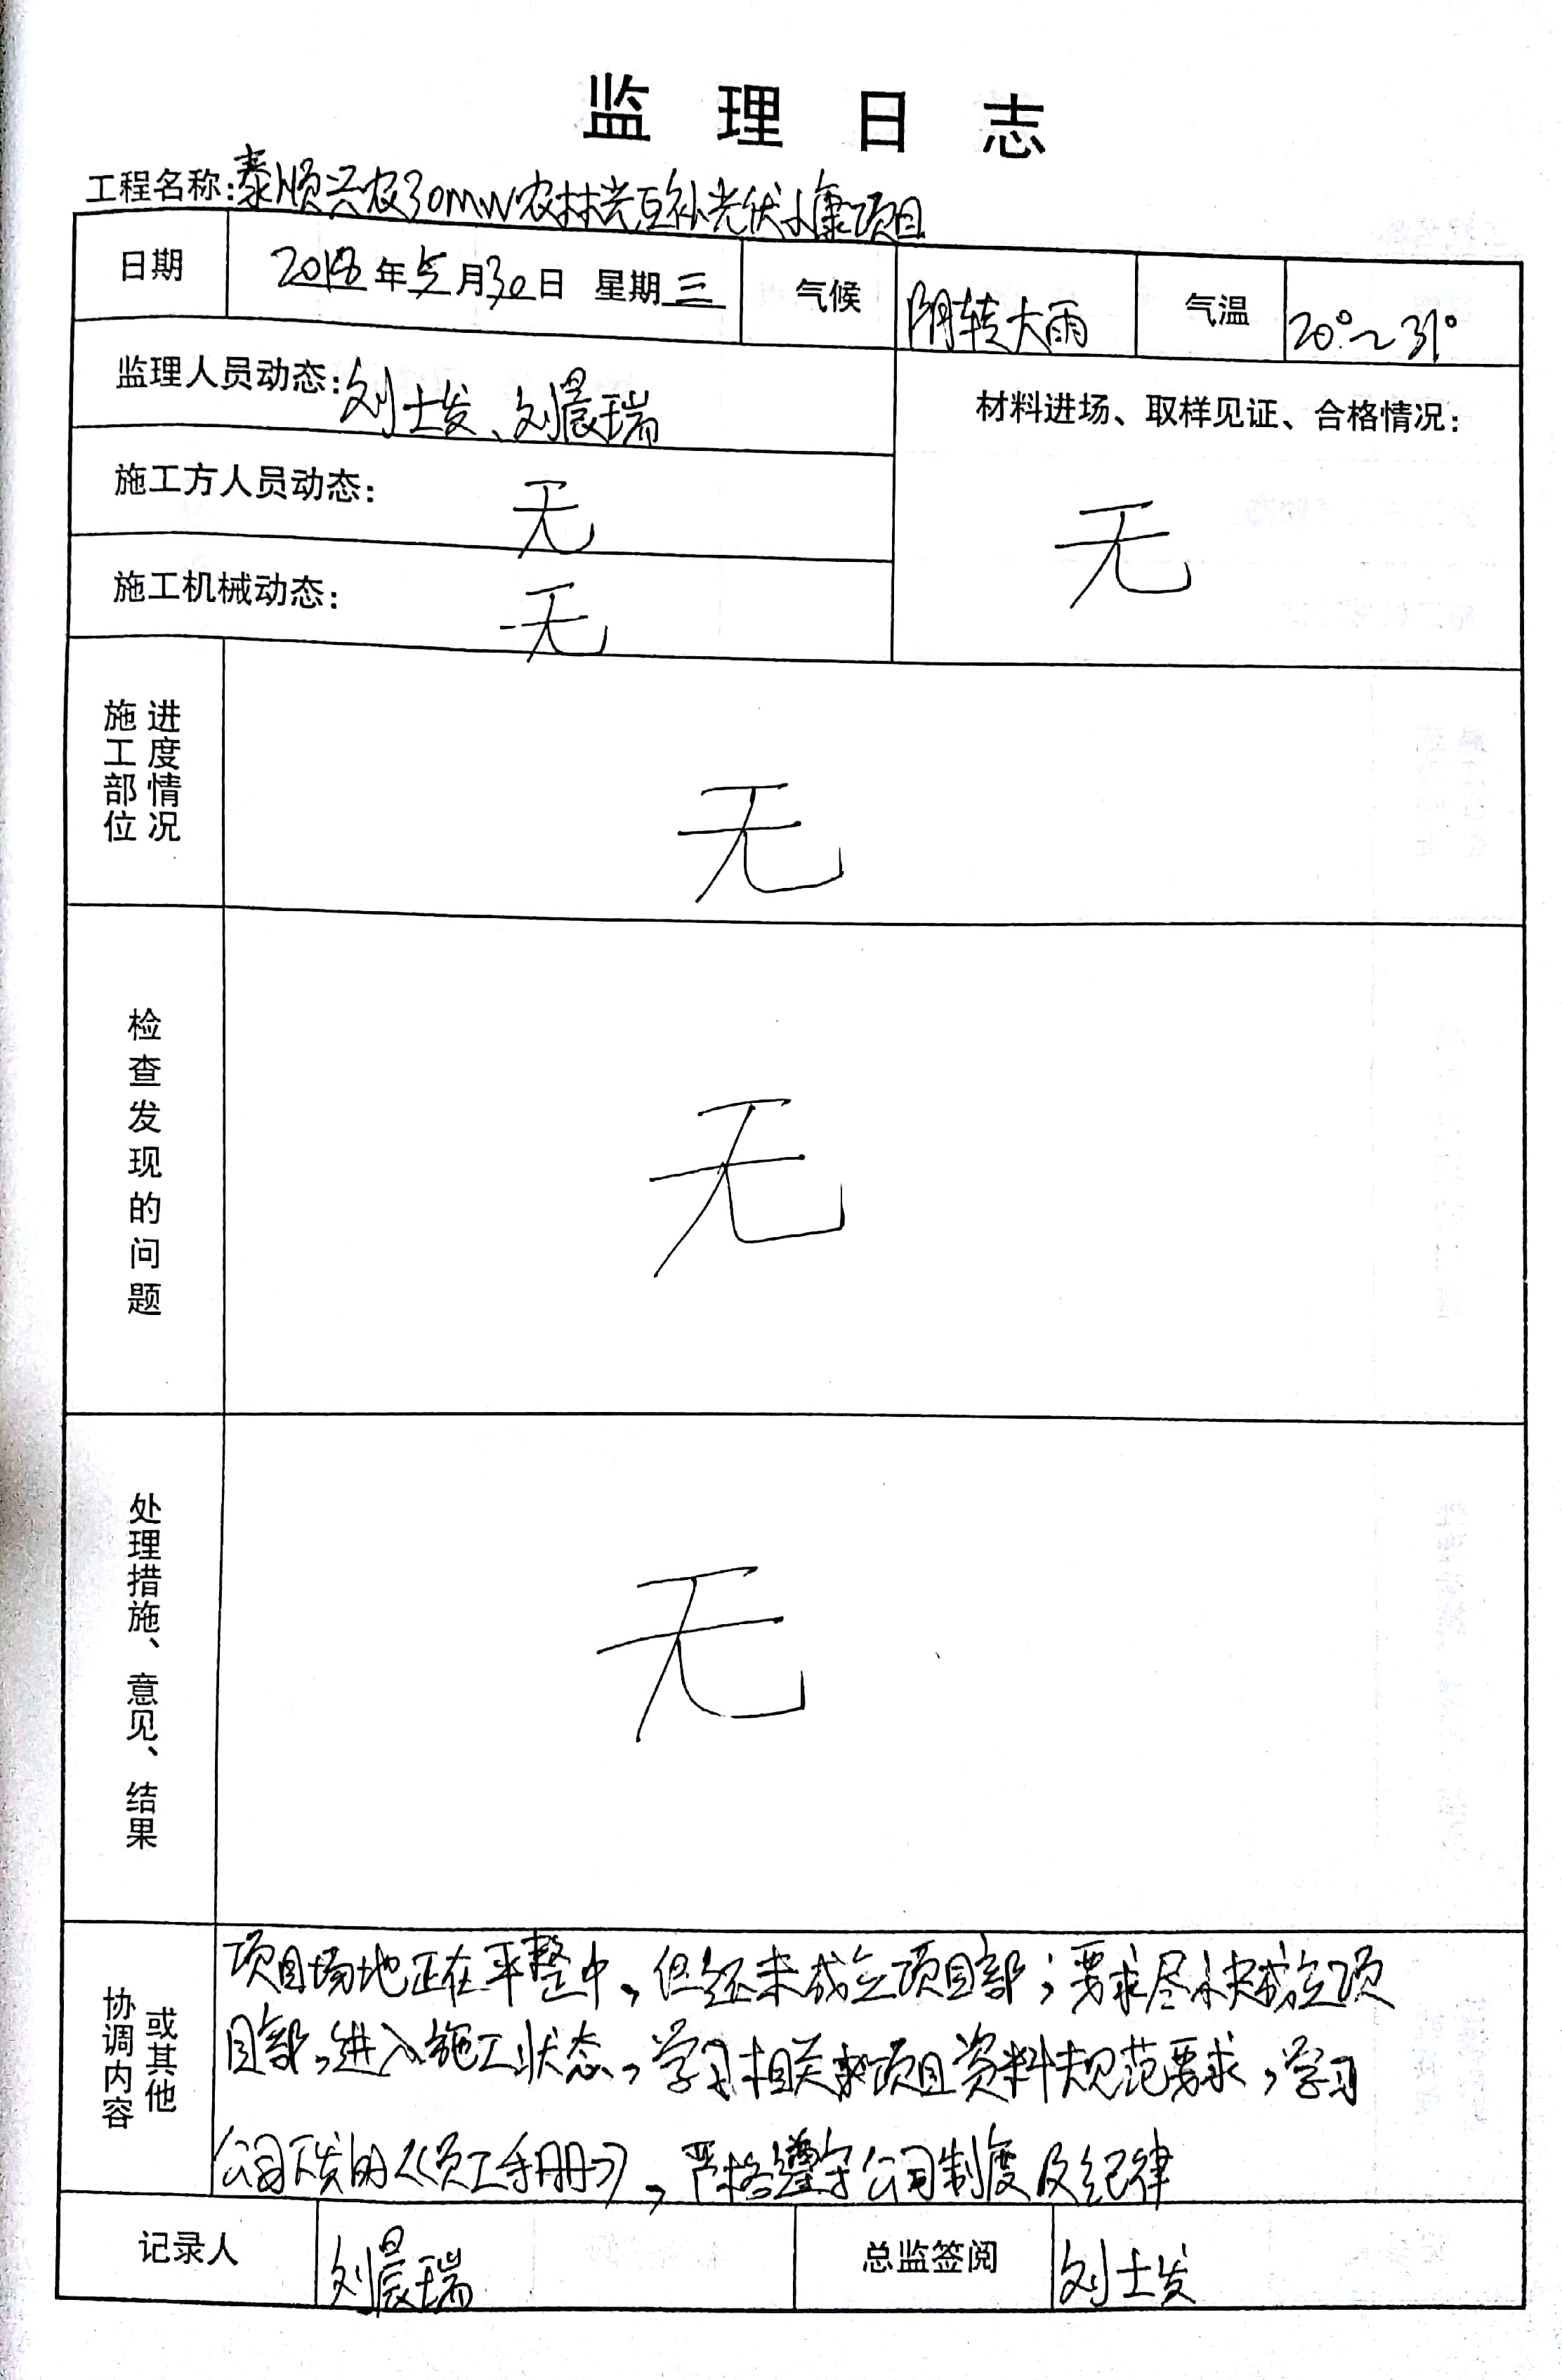 监理日志
工程名称:泰顺兴农30MW农林光互补光伏小康项目
日期 2018年5月30日 星期三 气候 阴转大雨 气温 20°~31°
监理人员动态:刘士发、刘晨瑞
材料进场、取样见证、合格情况:
无
施工方人员动态: 无
施工机械动态: 无
施工部位
进度情况
无
检查发现的问题
无
处理措施、意见、结果
无
协调内容
或其他
项目场地正在平整中,但还未成立项目部;要求尽快成立项
目部,进入施工状态,学习相关项目资料规范要求,学习
公司下发的《员工手册》,严格遵守公司制度及纪律
记录人 刘晨瑞 总监签阅 刘士发